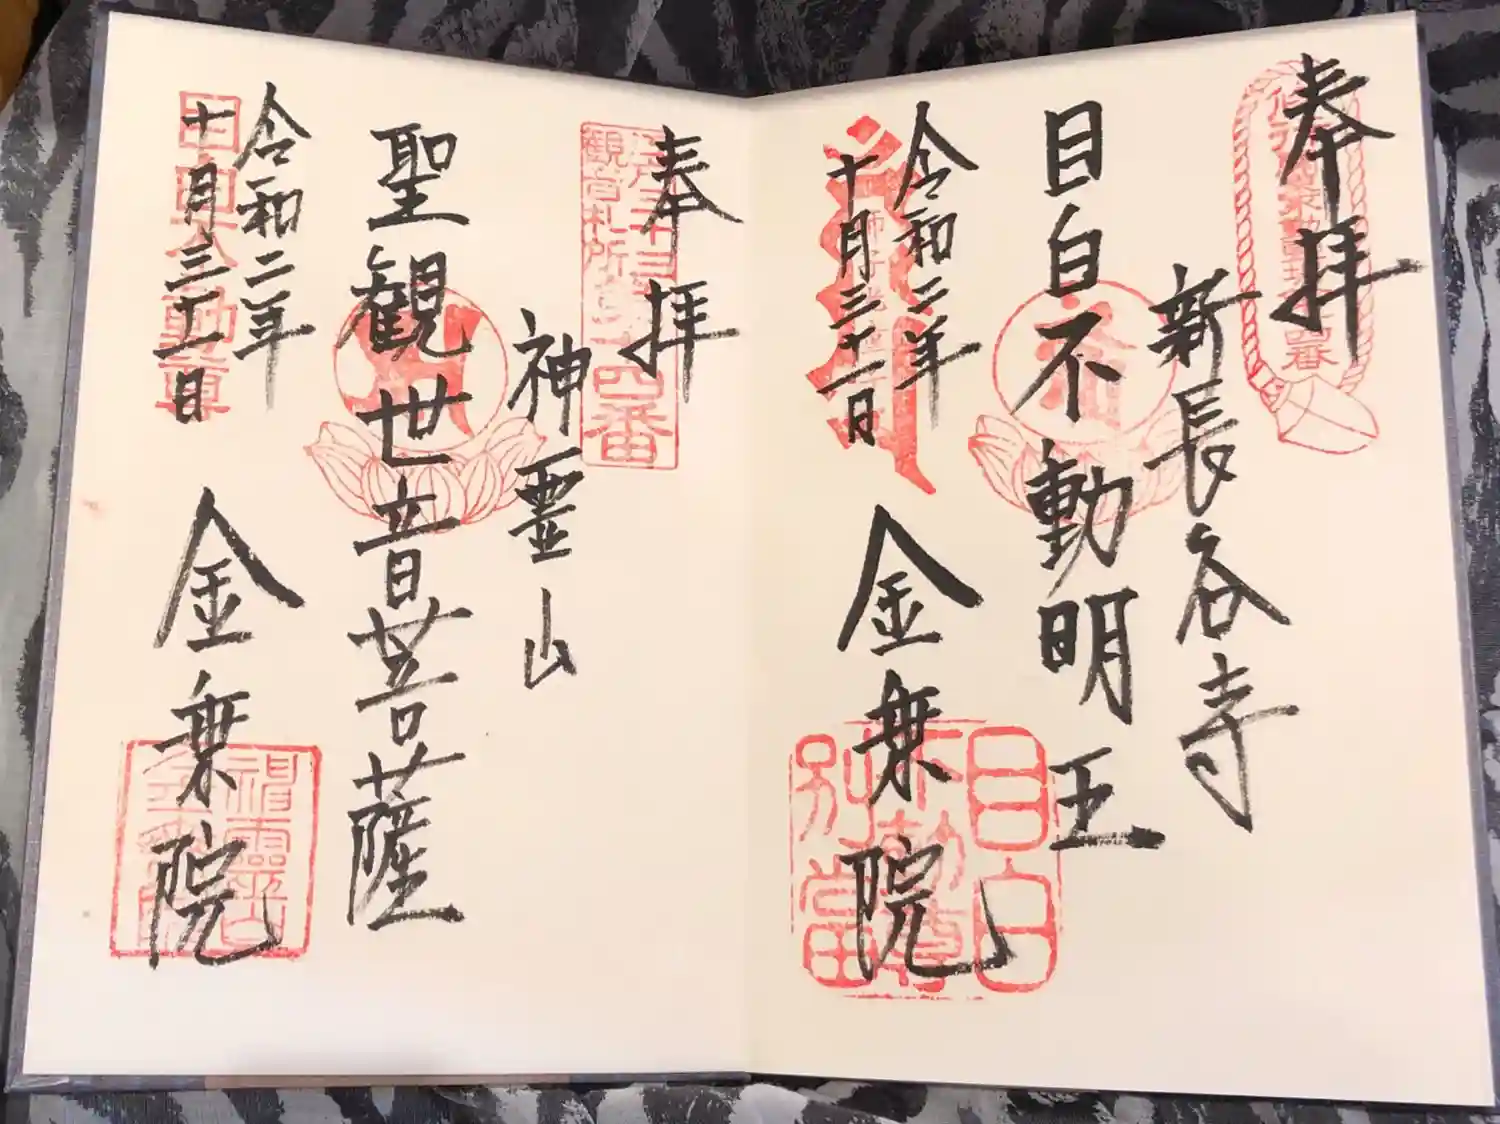 奉拝
新長谷寺
目白不動明王
令和二年
十月三十一日
金乗院
目白
不動尊
別当
奉拝
江戸三十三
観音札所第十四番
神霊山
聖観世音菩薩
令和二年
十月三十一日
金乗院
神霊山
金乗院